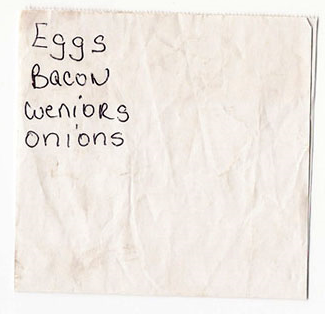 Eggs
Bacon
weniors
onions